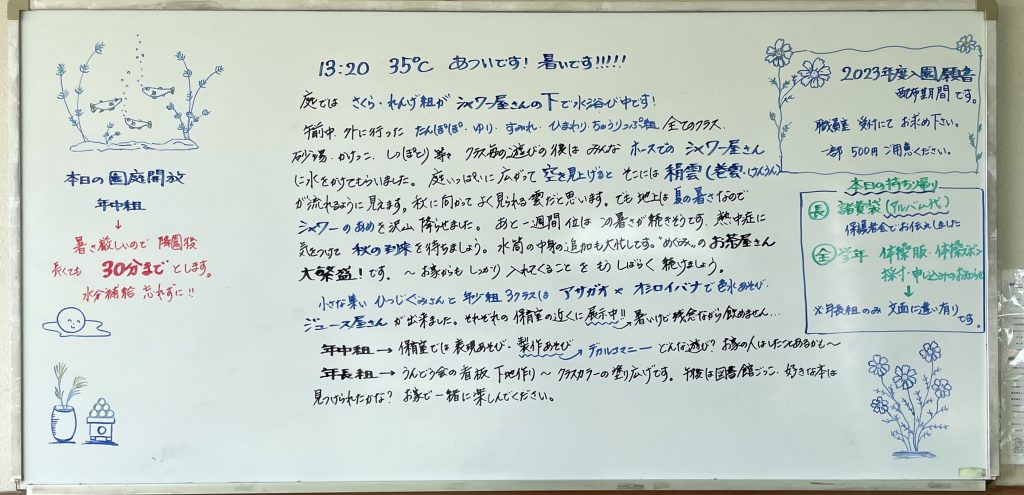 本日の園庭開放
年中組
↓
暑さ厳しいので 降園後
長くても 30分まで とします。
水分補給 忘れずに!!
13:20 35℃ あついです! 暑いです!!!!!
庭では さくら・れんげ組が シャワー屋さんの下で水浴び中です!
午前中、外に行った たんぽぽ・ゆり・すみれ・ひまわり・ちゅうりっぷ組 全てのクラス、
砂場・かけっこ・しっぽとり 等々 クラス毎の遊びの後は みんな ホースでの シャワー屋さん
に水をかけてもらいました。 庭いっぱいに 広がって 空を見上げると そこには 絹雲(巻雲・けんうん)
が流れるように見えます。秋に向かって よく見られる雲だと思います。でも 地上は 夏の暑さなので
シャワーの あめを 沢山 降らせました。 あと一週間位は この暑さが 続きそうです。熱中症に
気をつけて 秋の到来を待ちましょう。 水筒の中身の追加も大忙しです。"めぐみ"の お茶屋さん
大繁盛! です。 ～ お家からも しっかり 入れてくることを もうしばらく 続けましょう。
小さな集い ひつじぐみさんと 年少組 3クラスは アサガオ × オシロイバナで 色水あそび・
ジュース屋さん が出来ました。それぞれの 保育室の近くに 展示中!! 暑いけど 残念ながら 飲めません…
年中組 → 保育室では 表現あそび・ 製作あそび → デカルコマニー どんな遊び? お家の人はしたことあるかも～
年長組 → うんどう会の看板 下地作り ～ クラスカラーの塗り広げです。 午後は図書館ごっこ・好きな本は
見つけられたかな? お家で一緒に楽しんでください。
2023年度入園願書
配布期間です。
職員室 受付にて お求め下さい。
一部 500円 ご用意ください。
本日の持ち帰り
長 諸費袋 (アルバム代)
保護者会でお伝えしました
全 学年 体操服・体操ズボン
採寸・申し込みのお知らせ
↓
※年長組のみ 文面に違い有り
です。